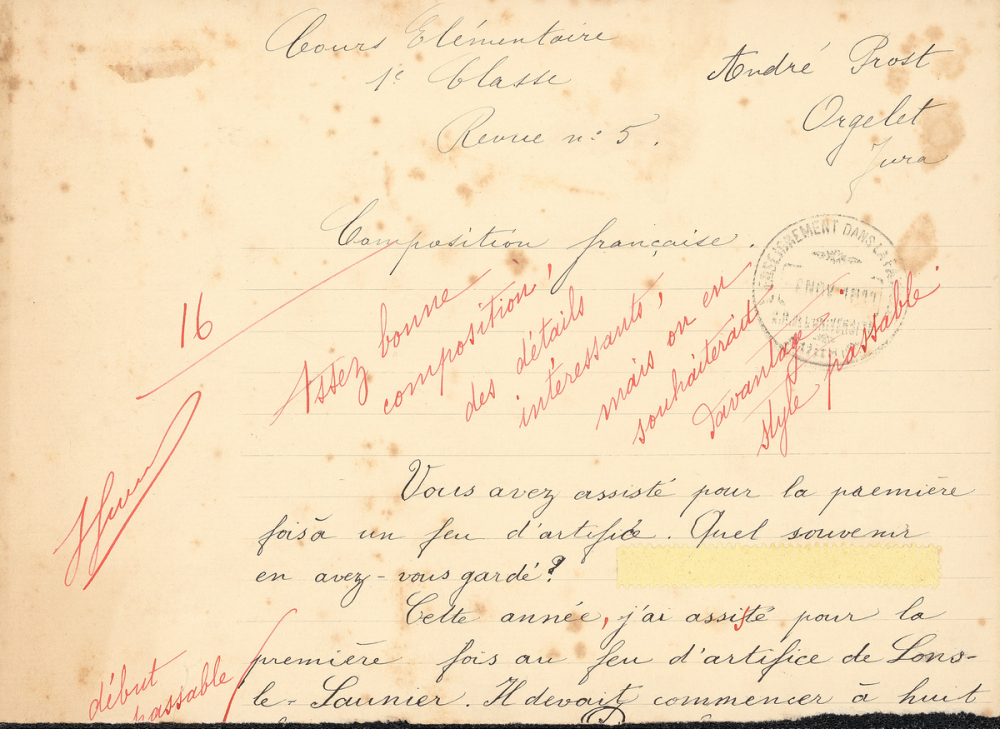 Cours Elémentaire
1e Classe
Revue n° 5.
André Prost
Orgelet
Jura
Composition française.
ENSEIGNEMENT DANS LA FA
NOV
16
Assez bonne
composition,
des détails
intéressants,
mais on en
souhaiterait
davantage
style passable.
Vous avez assisté pour la première
fois à un feu d'artifice. Quel souvenir
en avez-vous gardé?
Cette année, j'ai assisté pour la
première fois au feu d'artifice de Lons-
le-Saunier. Il devait commencer à huit
début
passable